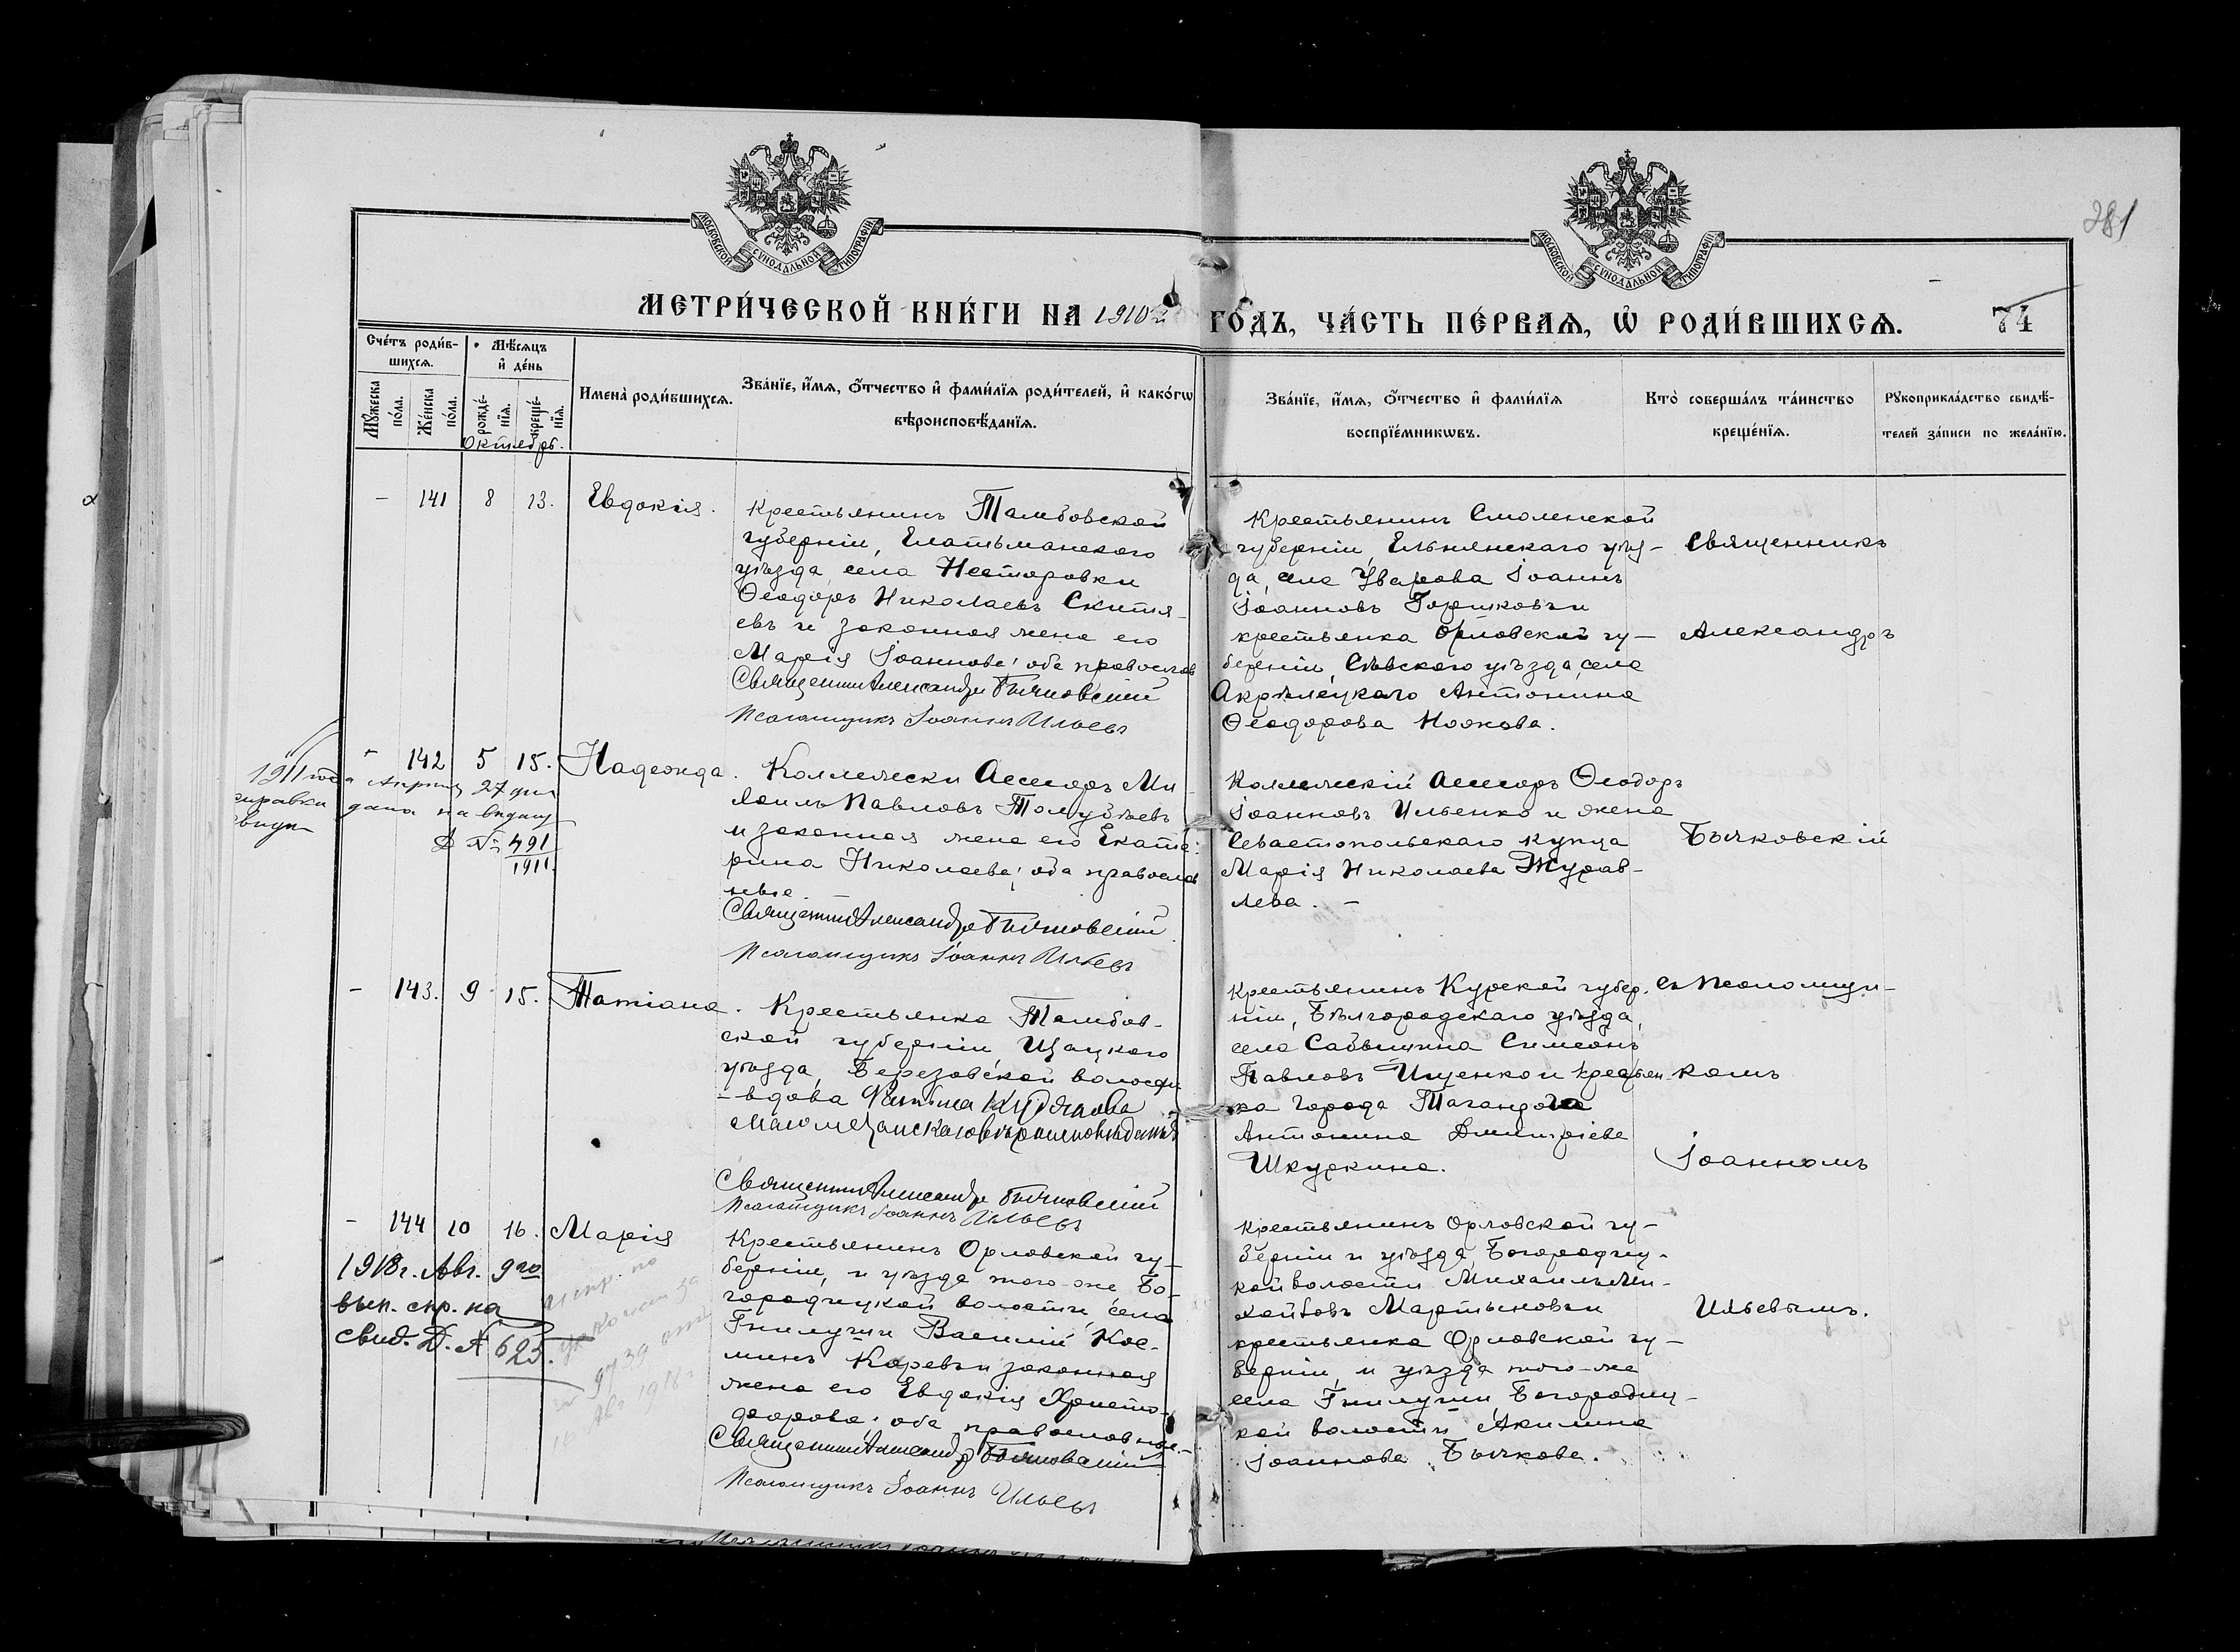 281
МОСКОВСКОЙ СУНОДАЛЬНОЙ ТИПОГРАФІИ
МОСКОВСКОЙ СУНОДАЛЬНОЙ ТИПОГРАФІИ
МЕТРИ́ЧЕСКОЙ КНИ́ГИ НА 1910 й
ГО́ДЪ, ЧА́СТЬ ПЕ́РВАѦ, Ѡ҆ РОДИ́ВШИХСѦ. 74
Сче́тъ роди́в-
шихсѧ.
Мꙋ́жеска
по́ла.
Же́нска
по́ла.
Мѣ́сѧцъ
и҆ де́нь
рожде́-
нїѧ.
креще́-
нїѧ.
Октябрь.
Имена̀ роди́вшихсѧ.
Зва́нїе, и҆́мѧ, ѻ҆́тчество и҆ фами́лїѧ роди́телей, и҆ како́гѡ
вѣроисповѣ́данїѧ.
Зва́нїе, и҆́мѧ, ѻ҆́тчество и҆ фами́лїѧ
воспрїе́мникѡвъ.
Кто̀ соверша́лъ та́инство
креще́нїѧ.
Рꙋкоприкла́дство свидѣ́-
телей за́писи по жела́нїю.
- 141 8 13. Евдокія.
Крестьянинъ Тамбовской
губерніи, Елатьманскаго
уѣзда, села Несторовки
Ѳеодоръ Николаевъ Скитя-
евъ и законная жена его
Марія Іоаннова; оба православ
Священникъ Александръ Бычковскій
Псаломщикъ Іоаннъ Ильевъ
Крестьянинъ Смоленской
губерніи, Ельнинскаго уѣз-
да, села Уварова Іоаннъ
Іоанновъ Горшковъ и
крестьянка Орловской гу-
берніи, Сѣвскаго уѣзда, села
Антонина
Ѳеодорова Носкова.
Священникъ
Александръ
Бычковскій
съ Псаломщи-
комъ
Іоанномъ
Ильевымъ.
- 142 5 15. Надежда.
1911 года Апрѣля 27 дня
справка дана на выдачу
№ 491
1911.
Коллежскій Ассесоръ Ми-
хаилъ Павловъ Толубѣевъ
и законная жена его Екате-
рина Николаева; оба православ
ные
Священникъ Александръ Бычковскій
Псаломщикъ Іоаннъ Ильевъ
Коллежскій Ассесоръ Ѳеодоръ
Іоанновъ Ильенко и жена
Севастопольскаго купца
Марія Николаева Журав-
лева. -
- 143. 9 15. Татіана.
Крестьянка Тамбов-
ской губерніи, Шацкаго
уѣзда, Березовской волости
- вдова
Магометанскаго вѣроисповѣданія
Священникъ Александръ Бычковскій
Псаломщикъ Іоаннъ Ильевъ
Крестьянинъ Курской губер-
ніи, Бѣлгородскаго уѣзда,
села Сабынина Симеонъ
Павловъ Ищенко и крестьян-
ка города Таганрога
Антонина Димитріева
Шкуркина.
- 144 10 16. Марія
1918 г. Авг. 9го
вып. спр. на
свид. Д. № 625.
Крестьянинъ Орловской гу-
берніи, и уѣзда того-же Бо-
городицкой волости, села
Гнилуши Василій Кос-
минъ Каревъ и законная
жена его Евдокія Христо-
дорова; оба православные. -
Священникъ Александръ Бычковскій
Псаломщикъ Іоаннъ Ильевъ
Крестьянинъ Орловской гу-
берніи и уѣзда, Богородиц-
кой волости Михаилъ
Мартыновъ и
крестьянка Орловской гу-
берніи, и уѣзда того-же
села Гнилуши, Богородиц-
кой волости Акилина
Іоаннова Бычкова.